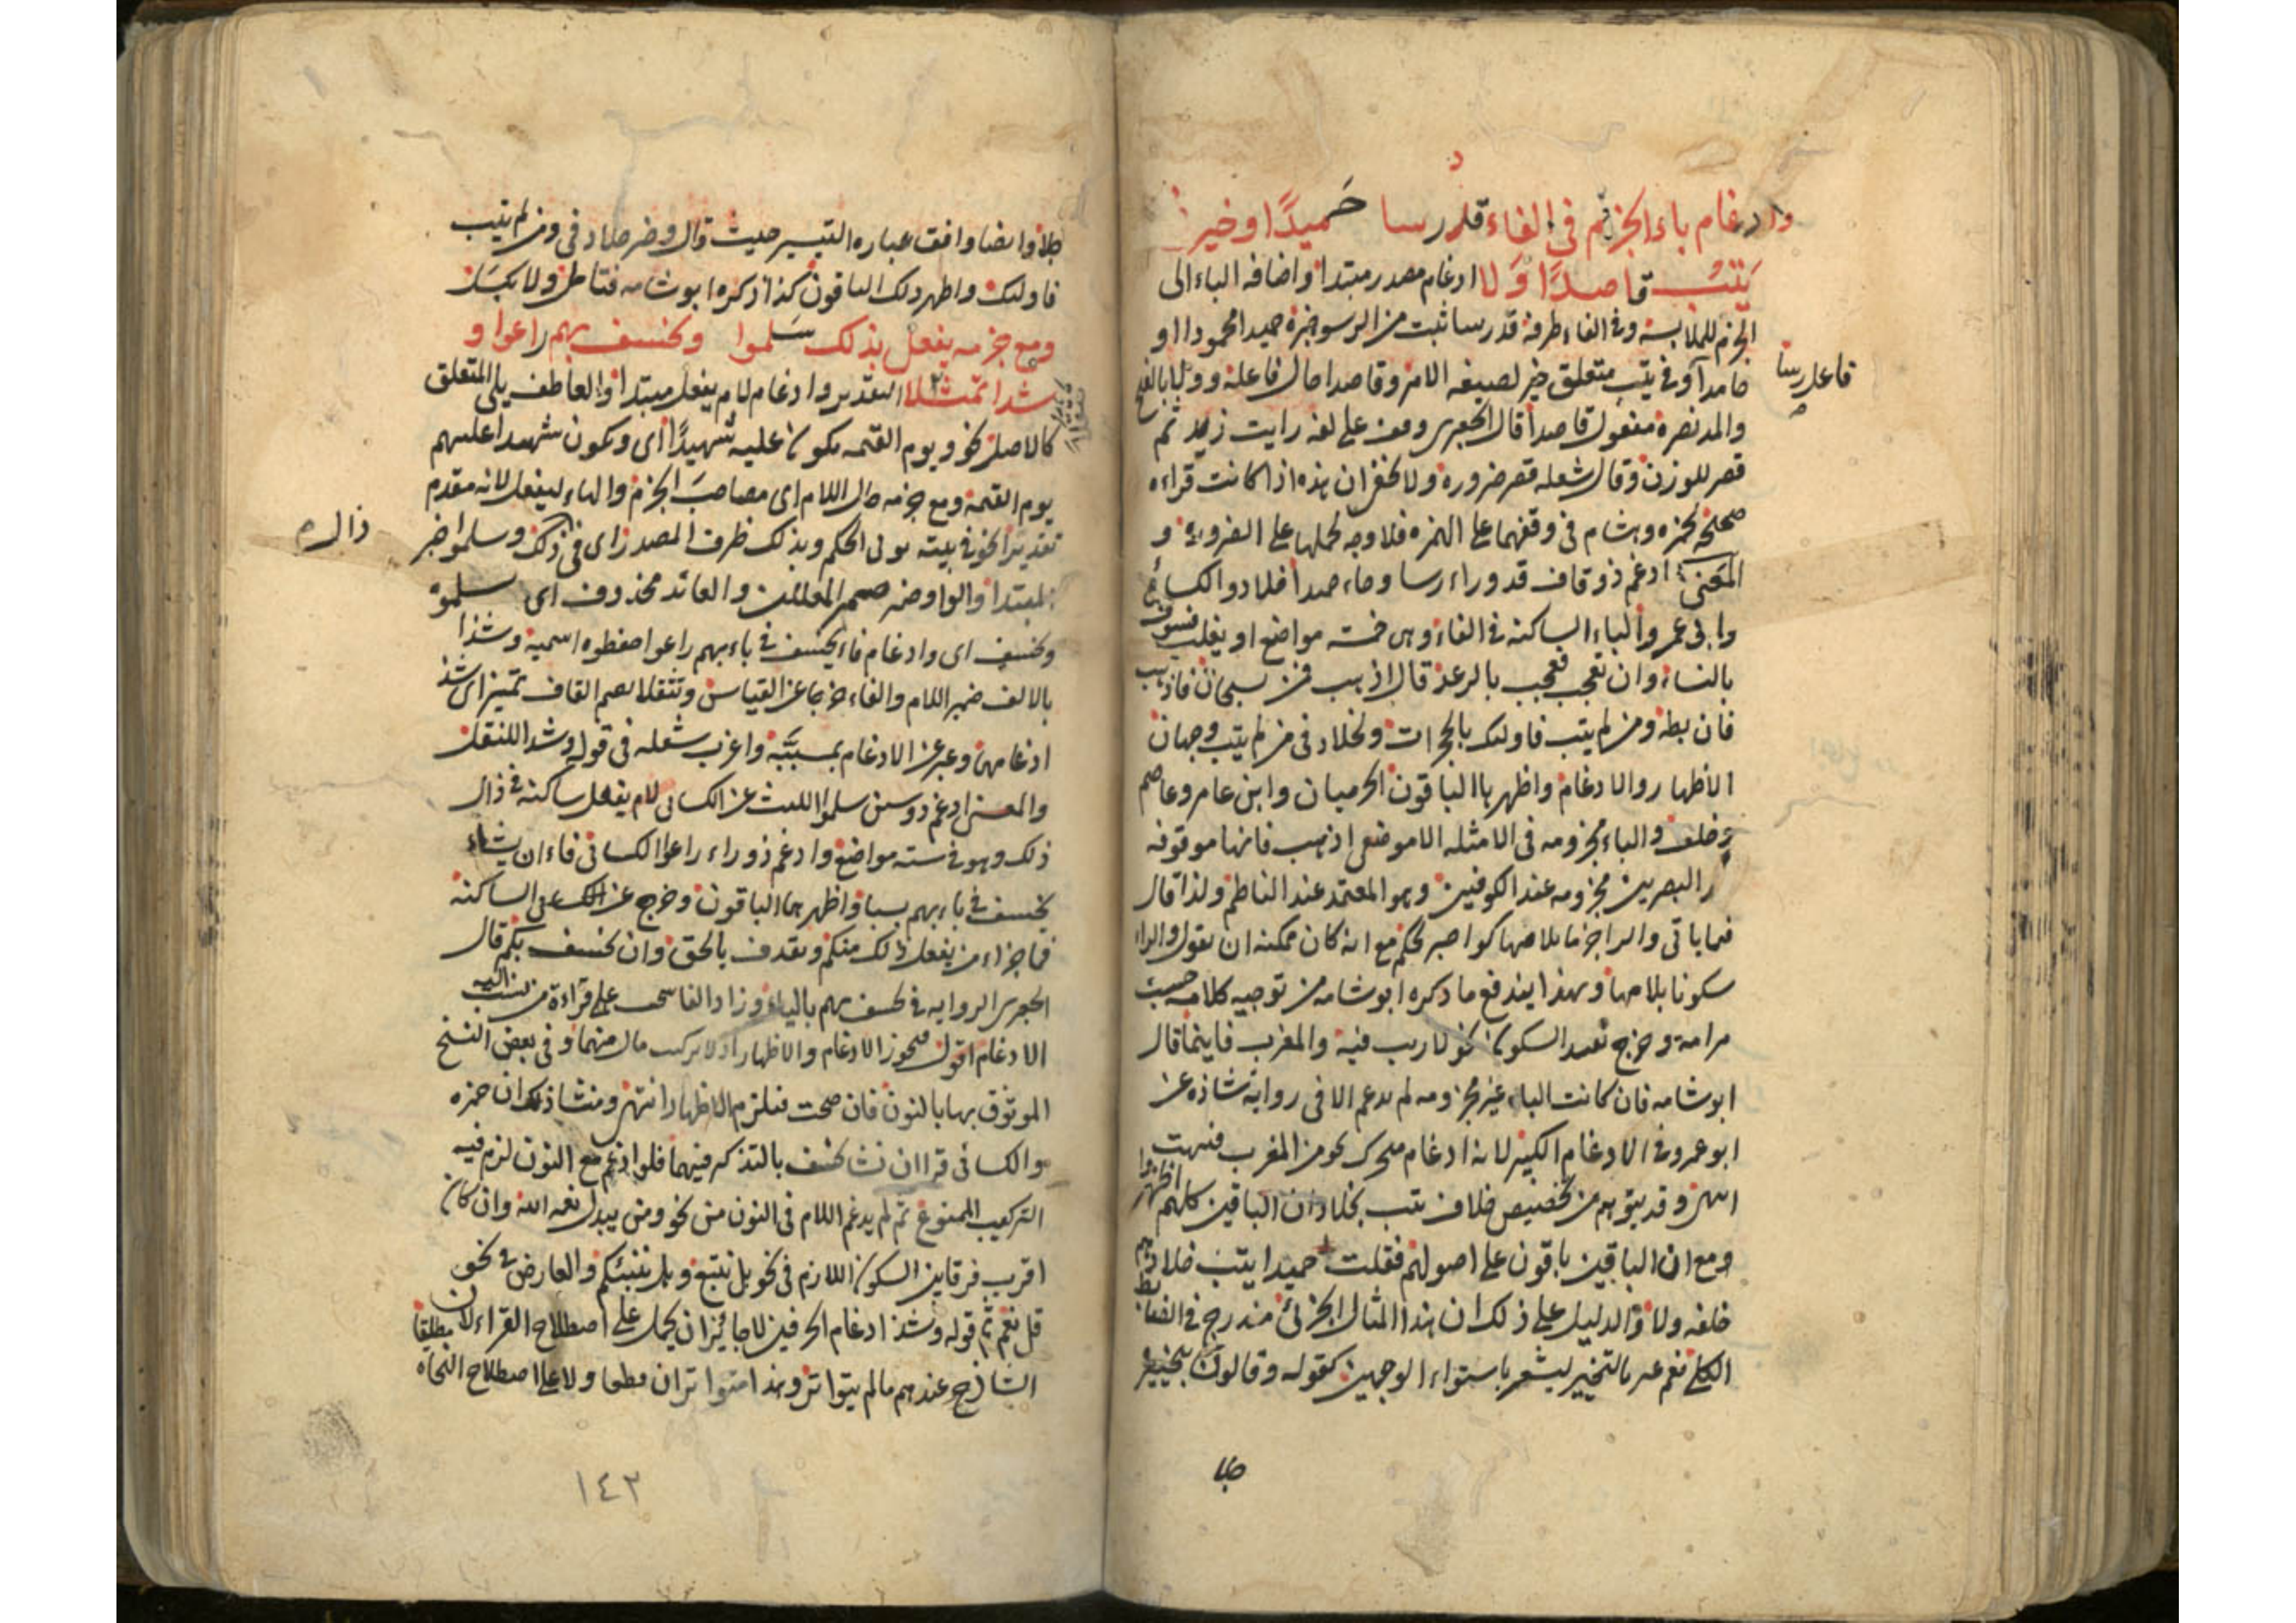 وادغام باء الجزم في الفاء قد رسا حَميدًا وخير
يَتُبْ قاصدًا وَلا ادغام مصدر مبتدا واضافه الباء الى
الجزم للملابسة وفي الفاء ظرفه قد رسا ثبت من الرسو خبره حميدا محمودا او
حامدا وفي يتب متعلق خير لصيغه الامر وقاصدا حال فاعله وولا بالفتح
فاعل رسا
والمد نصره مفعول قاصدا قال الجعبري وقف على لغه رايت زيد ثم
قصر للوزن وقال شعله قصر ضروره ولا يخفى ان هذه اذا كانت قراءه
صحيحة لحمزه وهشام في وقفهما على الهمزه فلا وجه لحملها على الضرورة و
المعنى ادغم ذو قاف قد وراء رسا وحاء حميدا خلاد والكسائي
وابي عمرو الباء الساكنه في الفاء وهي خمسه مواضع او يغلب فسوف
بالنساء وان تعجب فعجب بالرعد قال اذهب فمن بسبحان فاذهب
فان بطه ومن لم يتب فاولئك بالحجرات ولخلاد في من لم يتب وجهان
الاظهار والادغام واظهرها الباقون الحرميان وابن عامر وعاصم
وخلف والباء مجزومه في الامثله الا موضعي اذهب فانها موقوفه
البصريين مجزومه عند الكوفيين وهو المعتمد عند الناظم ولذا قال
فيما ياتي والراء جزما بلامها كواصبر لحكم مع انه كان يمكنه ان يقول والراء
سكونا بلامها وبهذا يندفع ما ذكره ابو شامه من توجيه كلامه حسب
مرامه وخرج بقيد السكون نحو لا ريب فيه والمغرب فاينما قال
ابو شامه فان كانت الباء غير مجزومه لم يدغم الا في روايه شاذه عن
ابو عمرو في الادغام الكبير لانه ادغام متحرك نحو من المغرب فبهت
انتهى وقد يتوهم من تخصيص خلاف يتب بخلاد ان الباقين كلهم اظهروا
ومع ان الباقين باقون على اصولهم فقلت حميدا يتب خلاد
خلفه ولا والدليل على ذلك ان هذا المثال الجزئي مندرج في
الكلي نعم عبر بالتخيير ليشعر باستواء الوجهين كقوله وقالون بتخييره
جلا وايضا وافق عباره التيسير حيث قال وخير خلاد في ومن لم يتب
فاولئك واظهر ذلك الباقون كذا ذكره ابو شامه فتامل ولا تكسل
ومع جزمه يفعل بذلك سَلموا ونخسف بهم راعوا و
شدا تثقلا التقدير وادغام لام يفعل مبتدا والعاطف يلي المتعلق
كالاصل نحو ويوم القيمه يكون عليهم شهيدًا اي ويكون شهيدا عليهم
يوم القيمه ومع جزمه حال اللام اي مصاحبَ الجزم والهاء ليفعل لانه مقدم
تقديرا نحو في بيته يوتى الحكم وبذلك ظرف المصدر اي في ذلك وسلموا خبر
ذال
المبتدا والواو ضمير والعائد محذوف اي سلموه
ونخسف اي وادغام فاء نخسف في باء بهم راعوا حفظوه اسميه وشذا
بالالف ضمير اللام والفاء خرجا عن القياس وتثقلا بضم القاف تمييز اي شذ
ادغامهما وعبر عن الادغام بمسببه واغرب شعله في قوله وشذا للتثقل
والمعنى ادغم ذو سين سلموا الليث عن الكسائي لام يفعل ساكنه في ذال
ذلك وهو في سته مواضع وادغم ذو راء راعوا الكسائي فاء ان يشاء
يخسف في باء بهم بسبا واظهرهما الباقون وخرج عن الساكنه
فما جزاء من يفعل ذلك منكم ونقذف بالحق وان نخسف بكم قال
الجعبري الروايه في نخسف بهم بالياء وزاد الفاسي على قراءة من نسب اليه
الادغام اقول فيجوز الادغام والاظهار اذ لا تركيب حال منهما وفي بعض النسخ
الموثوق بها بالنون فان صحت فيلزم الاظهار انتهى ومنشا ذلك ان حمزه
والكسائي قرا ان نشا نخسف بالتذكير فيهما فلو ادغم مع النون لزم فيه
التركيب الممنوع ثم لم يدغم اللام في النون من نحو ومن يبدل نعمه الله وان كان
اقرب فرقا بين السكون اللازم في نحو بل نتبع وهل ننبئكم والعارض في نحو
قل نعم ثم قوله وشذا ادغام الحرفين لا جائز ان يحمل على اصطلاح القراء لان مطلقا
الشاذ عندهم ما لم يتواتر وهذا متواتران قطعا ولا على اصطلاح النحاه
١٤٢